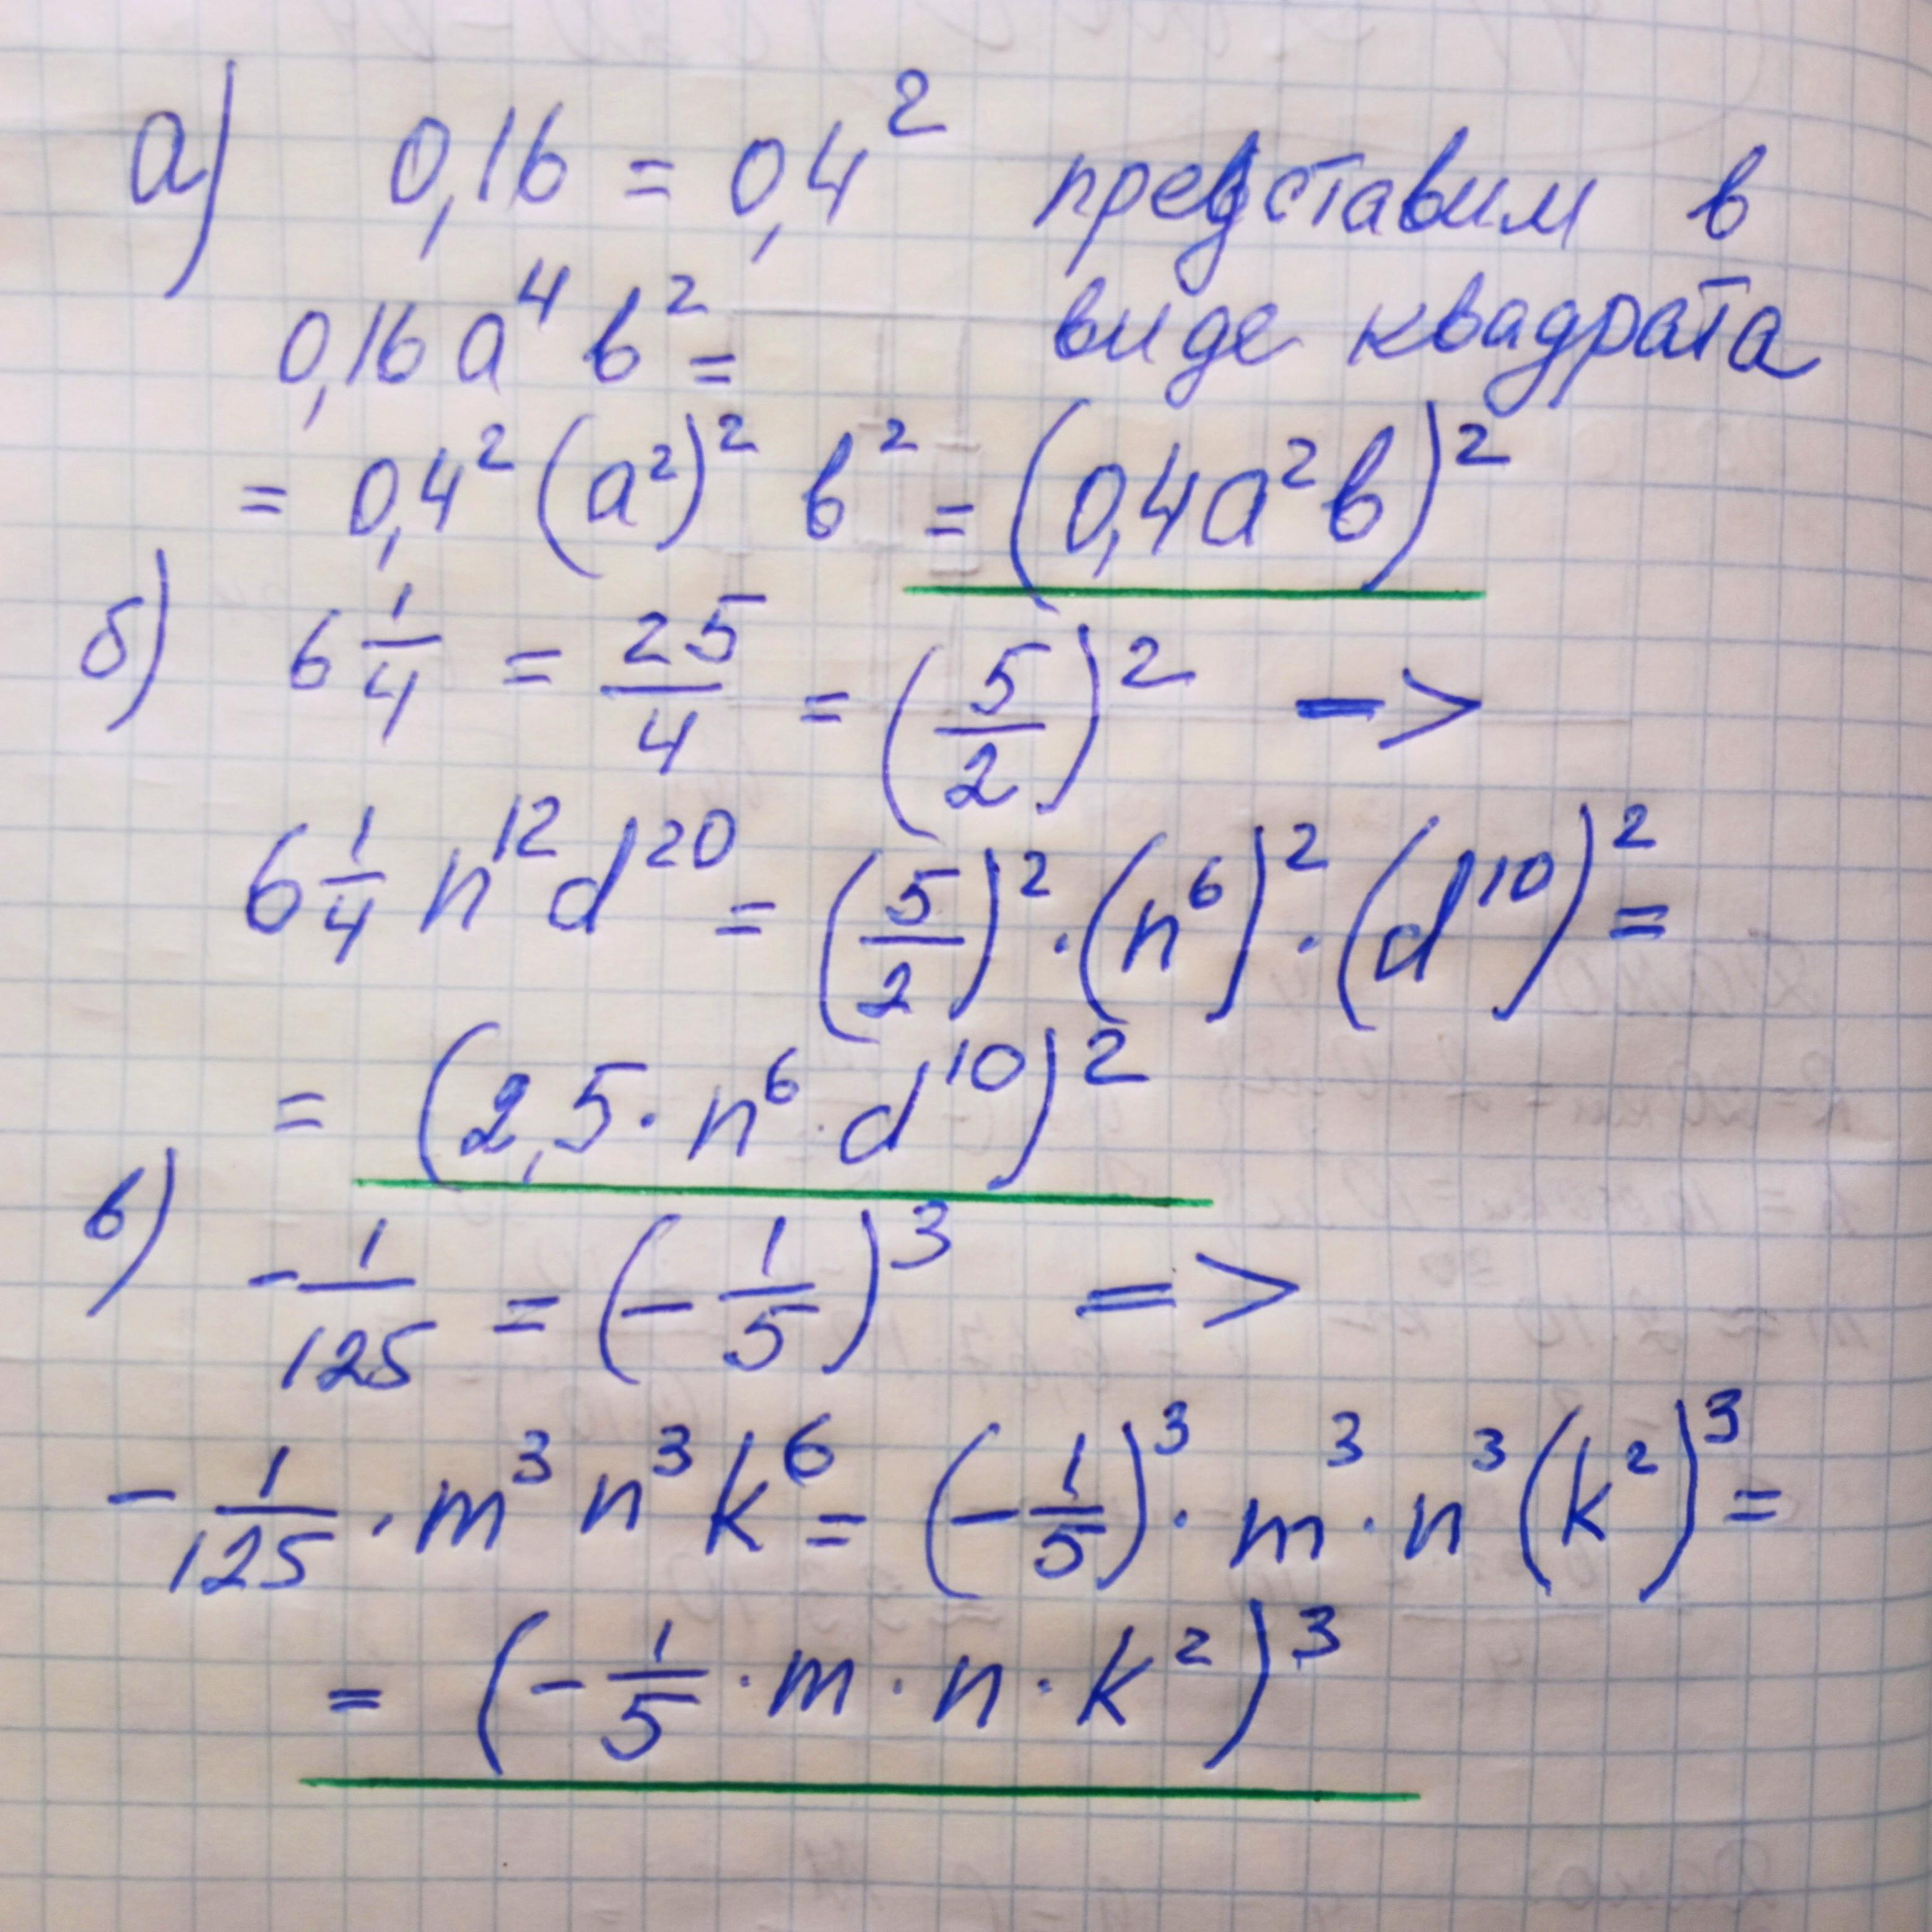 а) 0,16 = 0,4² представим в
0,16 a⁴ b² = виде квадрата
= 0,4² (a²)² b² = (0,4a²b)²
б) 6 1/4 = 25/4 = (5/2)² ->
6 1/4 n¹² d²⁰ = (5/2)² · (n⁶)² · (d¹⁰)² =
= (2,5 · n⁶ · d¹⁰)²
в) - 1/125 = (- 1/5)³ =>
- 1/125 · m³ n³ k⁶ = (- 1/5)³ · m³ · n³ (k²)³ =
= (- 1/5 · m · n · k²)³